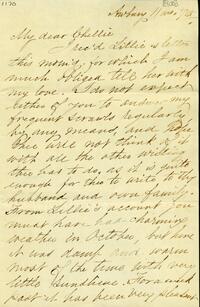 1170
My dear Chellie
I rec'd Lillie's letter
this morn'g, for which I am
much obliged tell her with
my love. I do not expect
either of you to answer my
frequent scrawls regularly
by any means, and
she will not think of it
with all the other writing
she has to do, as it is quite
enough for her to write to her
husband and own family.
From Lillie's account you
must have had charming
weather in October, but here
it was damp and warm
most of the time with very
little sunshine. For a week
past it has been very pleasant